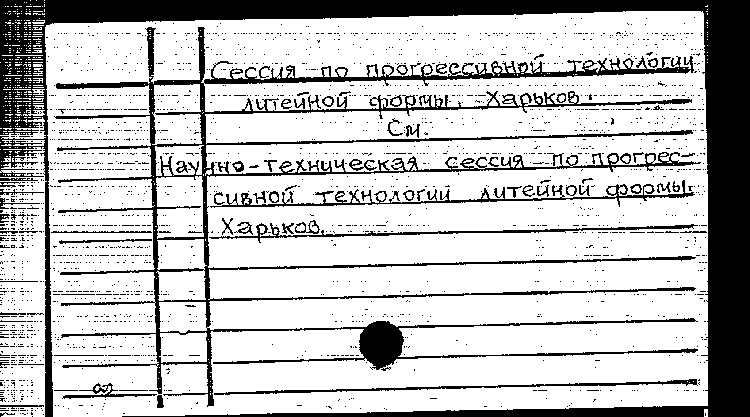 Сессия по прогрессивной технологии
литейной формы. Харьков.
См.
Научно-техническая сессия по прогрес-
сивной технологии литейной формы.
Харьков.